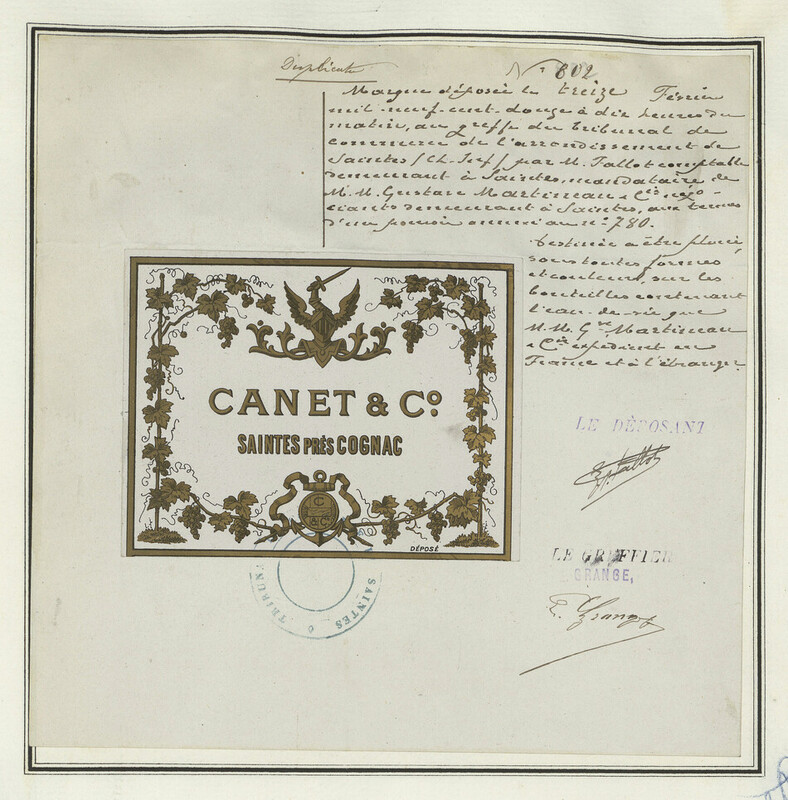 Duplicata
N° 802
Marque déposée le treize Février
mil-neuf-cent-douze à dix heures du
matin, au greffe du tribunal de
commerce de l'arrondissement de
Saintes (Ch. Inf.) par M. Tallot comptable
demeurant à Saintes, mandataire de
M.M. Gustave Martineau & Cie négo-
ciants demeurant à Saintes, aux termes
d'un pouvoir annexé au n° 780.
Destinée à être placé
sous toutes formes
et couleurs, sur les
bouteilles contenant
l'eau-de-vie que
M.M. Gve Martineau
& Cie expédient en
France et à l'étranger
CANET & Co.
SAINTES PRÈS COGNAC
C
& Co
DÉPOSÉ
LE DÉPOSANT
Tallot
LE GREFFIER
GRANGE,
E. Grange
TRIBUNAL
SAINTES